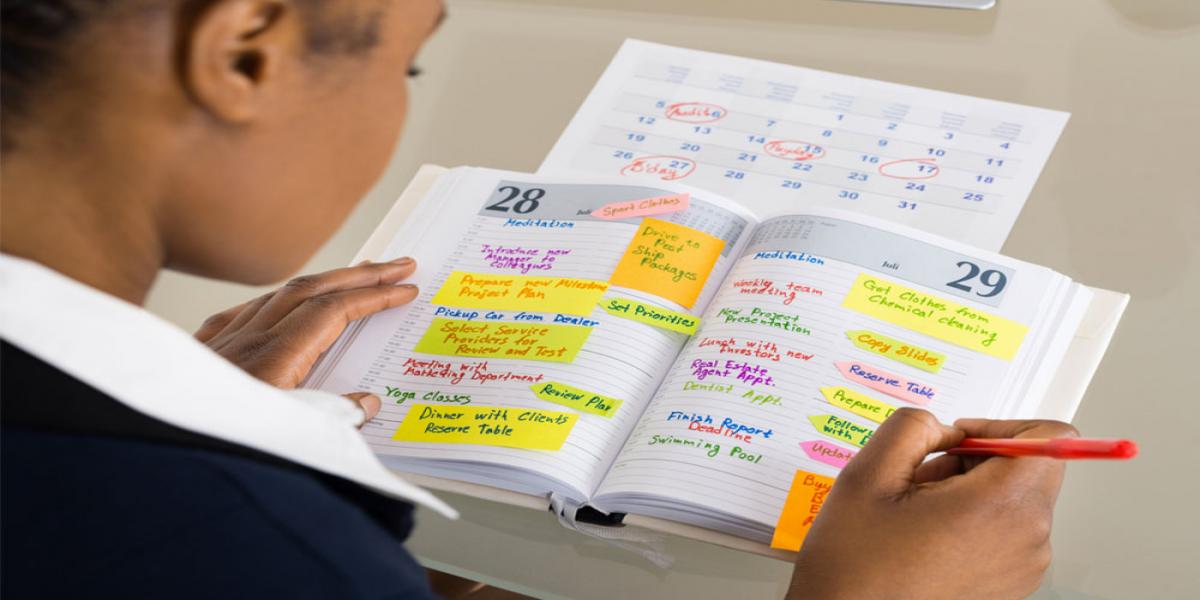 Audit 6
5
7
1
2
3
4
12
13
14
Payday 15
8
9
10
11
19
20
21
22
16
17
18
26
B'day 27
28
29
23
24
25
30
31
28
Juli
Sport Clothes
Meditation
Introduce new
Manager to
Colleagues
Drive to
Post
Ship
Packages
Prepare new Milestone
Project Plan
Set Priorities
Pickup Car from Dealer
Select Service
Providers for
Review and Test
Meeting with
Marketing Department
Review Plan
Yoga Classes
Dinner with Clients
Reserve Table
Juli
29
Meditation
Weekly team
meeting
Get Clothes from
Chemical cleaning
New Project
Presentation
Copy Slides
Lunch with new
Investors
Reserve Table
Real Estate
Agent Appt.
Dentist Appt.
Prepare
Follow
with
Finish Report
Deadline
Updat
Swimming Pool
Buy